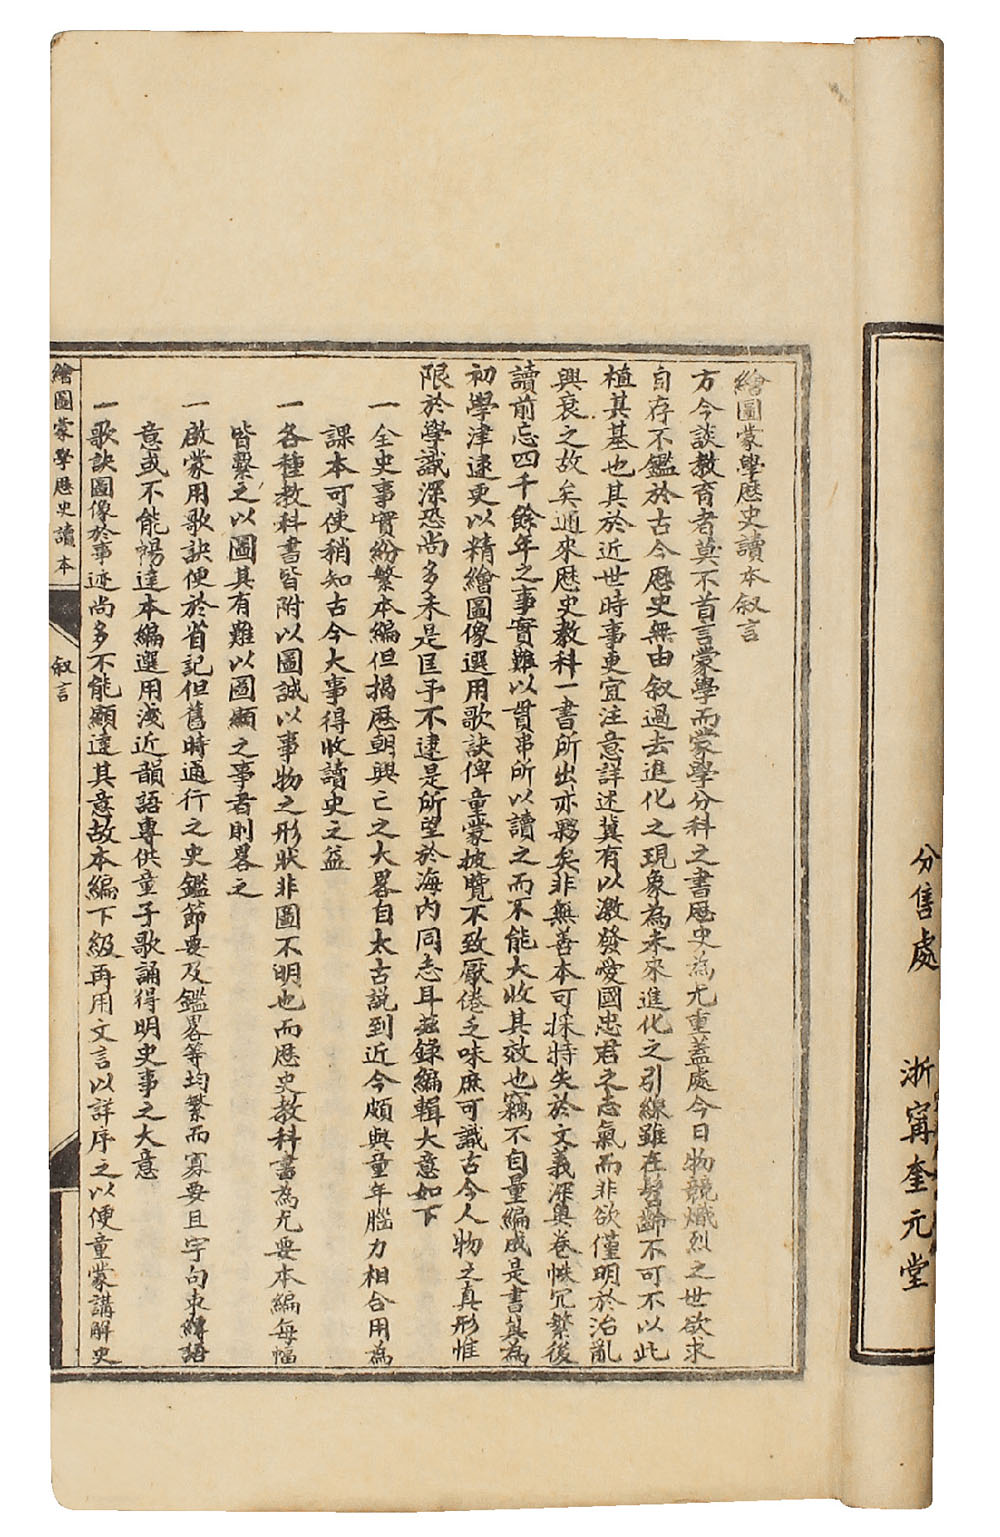 分售處　浙甯奎元堂
繪圖蒙學歷史讀本叙言
方今談教育者莫不首言蒙學而蒙學分科之書歷史為尤重蓋處今日物競熾烈之世欲求
自存不鑑於古今歷史無由叙過去進化之現象為未來進化之引線雖在髫齡不可不以此
植其基也其於近世時事更宜注意詳述冀有以激發愛國忠君之志氣而非欲僅明於治亂
興衰之故矣通來歷史教科一書所出亦夥矣非無善本可採特失於文義深奧卷帙冗繁後
讀前忘四千餘年之事實難以貫串所以讀之而不能大收其效也竊不自量編成是書其為
初學津逮更以精繪圖像選用歌訣俾童蒙披覽不致厭倦乏味庶可識古今人物之真形惟
限於學識深恐尚多未是匡予不逮是所望於海内同志耳茲錄編輯大意如下
一全史事實紛繁本編但揭歷朝興亡之大畧自太古説到近今頗與童年腦力相合用為
課本可使稍知古今大事得收讀史之益
一各種教科書皆附以圖誠以事物之形狀非圖不明也而歷史教科書為尤要本編每幅
皆繫之以圖其有難以圖顯之事者則畧之
一啟蒙用歌訣便於省記但舊時通行之史鑑節要及鑑畧等均繁而寡要且字句東縛語
意或不能暢達本編選用淺近韻語專供童子歌誦得明史事之大意
一歌訣圖像於事迹尚多不能顯達其意故本編下級再用文言以詳序之以便童蒙講解史
繪圖蒙學歷史讀本　叙言